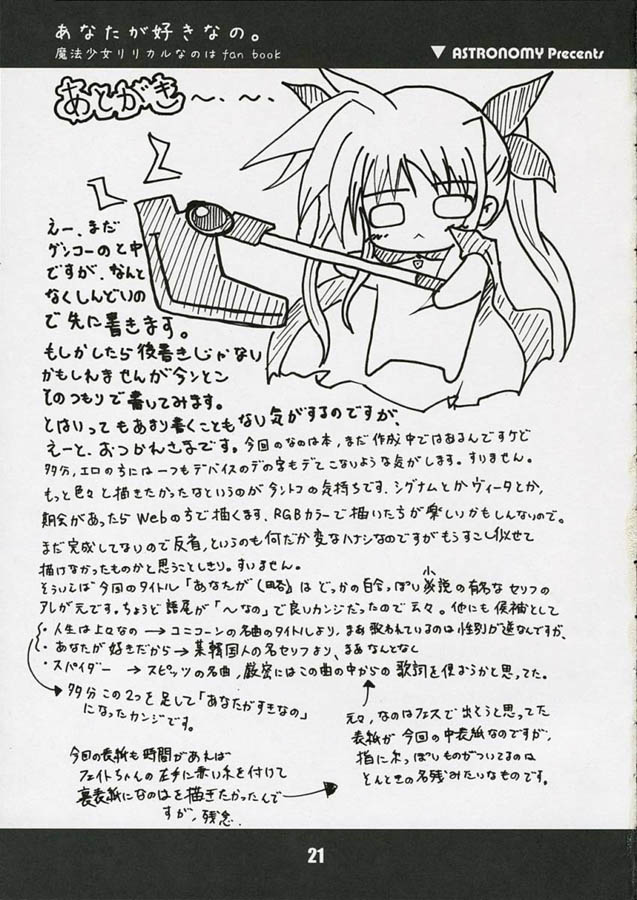 あなたが好きなの。
魔法少女リリカルなのは fan book
▼ ASTRONOMY Precents
あとがき〜、〜、
えー、まだ
ゲンコーのと中
ですが、なんと
なくしんどいの
で先に書きます。
もしかしたら後書きじゃない
かもしれませんが今ンとこ
そのつもりで書してみます。
とはいってもあまり書くこともない気がするのですが、
えーと、おつかれさまです。今回のなのは本、まだ作成中ではあるんですケど
多分、エロのちには一つもデバイスのデの字もデてこないような気がします。すいません。
もっと色々と描きたかったなというのが今ントコの気持ちです、シグナムとかヴィータとか、
機会があったらWebの方で描くます、RGBカラーで描いたちが楽しいかもしんないので。
まだ完成してないので反省、というのも何だか変なハナシなのですがもうすこし似せて
描けなかったものかと思うことしきり。すいません。
そういえば今回のタイトル「あなたが(略)」は どっかの百合っぽい小説の有名なセリフの
アレが元です。ちょうど語尾が「〜なの」で良いカンジだったので云々。他にも候補として
・人生は上々なの → ユニコーンの名曲のタイトルより、まあ歌われているのは性別が逆なんですが、
・あなたが好きだから → 某韓国人の名セリフより、まあなんとなく
・スパイダー → スピッツの名曲、厳密にはこの曲の中からの歌詞を使おうかと思ってた。
多分この2つを足して「あなたがすきなの」
になったカンジです。
元々、なのはフェスで出そうと思ってた
表紙が今回の中表紙なのですが、
指に糸っぽいものがついてるのは
そんときの名残みたいなものです。
今回の表紙も時間があれば
フェイトちゃんの左手に赤い糸を付けて
裏表紙になのはを描きたかったんで
すが、残念
21